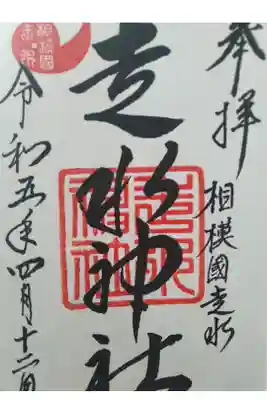 奉拝
相模國走水
走水神社
令和五年四月十二日